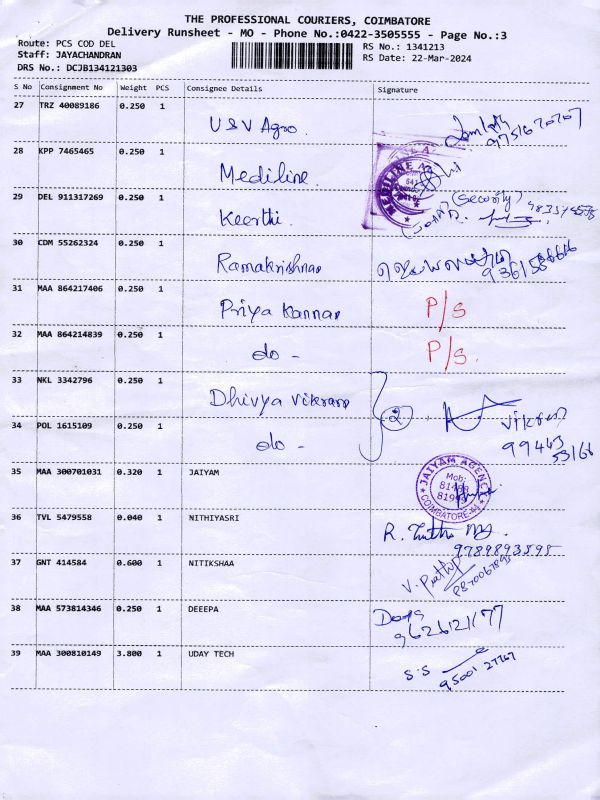 THE PROFESSIONAL COURIERS, COIMBATORE
Delivery Runsheet - MO - Phone No.:0422-3505555 - Page No.:3
Route: PCS COD DEL
Staff: JAYACHANDRAN
DRS No.: DCJB134121303
RS No.: 1341213
RS Date: 22-Mar-2024
S No Consignment No Weight PCS Consignee Details Signature
27 TRZ 40089186 0.250 1 U & V Agro. 9751670707
28 KPP 7465465 0.250 1 Mediline.
MEDILINE
29 DEL 911317269 0.250 1 Keerthi. (Security)
30 CDM 55262324 0.250 1 Ramakrishnan
31 MAA 864217406 0.250 1 Priya Kannan P/S
32 MAA 864214839 0.250 1 do - P/S.
33 NKL 3342796 0.250 1 Dhivya Vikram 2 Vikram
34 POL 1615109 0.250 1 do -
35 MAA 300701031 0.320 1 JAIYAM
JAIYAM AGENCY
Mob:
COIMBATORE-44
36 TVL 5479558 0.040 1 NITHIYASRI
9789893898
37 GNT 414584 0.600 1 NITIKSHAA
38 MAA 573814346 0.250 1 DEEEPA Deepa
9626121177
39 MAA 300810149 3.800 1 UDAY TECH S.S
95001 27767